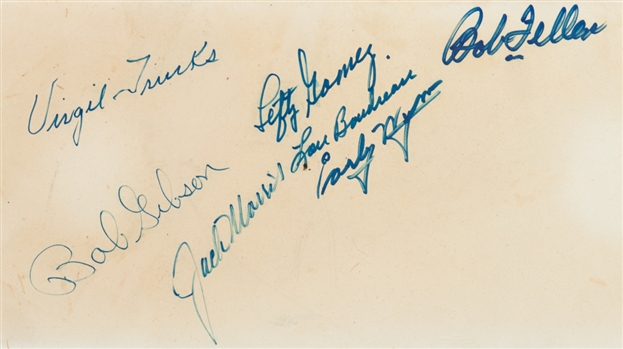 Virgil Trucks
Lefty Gomez
Bob Feller
Lou Boudreau
Early Wynn
Bob Gibson
Jack Morris